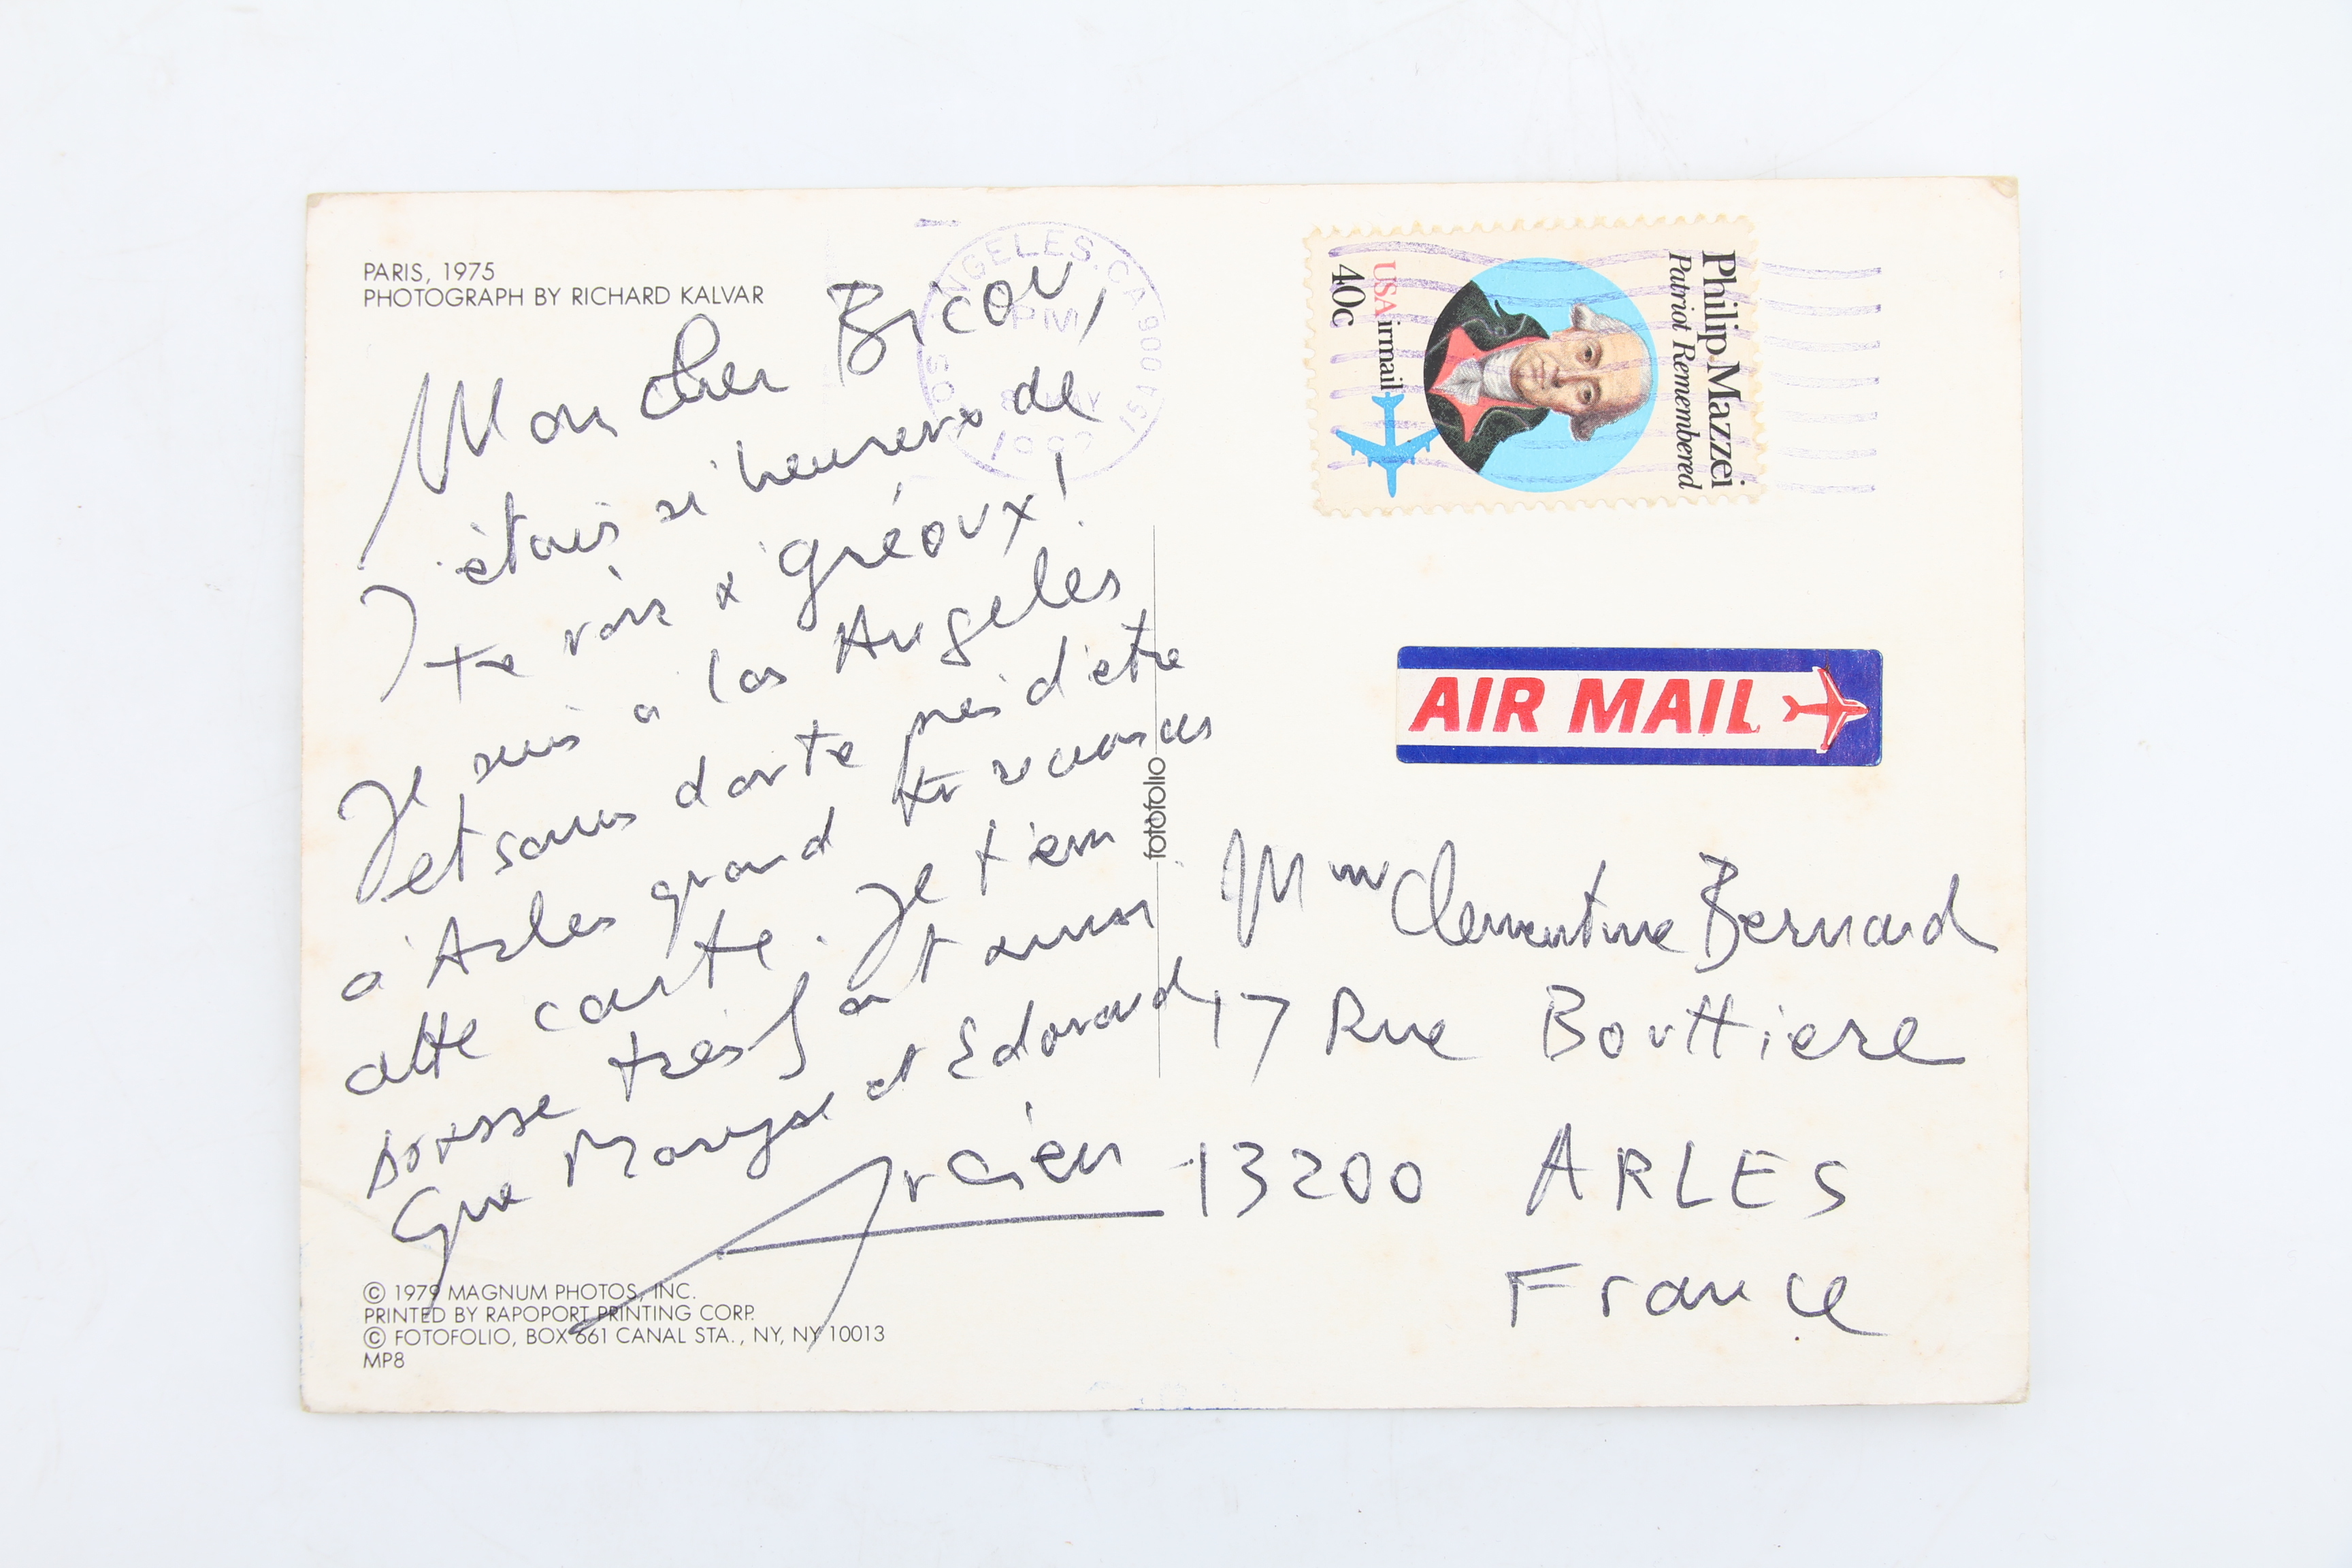 PARIS, 1975
PHOTOGRAPH BY RICHARD KALVAR
Mon cher Bicou,
J'étais si heureux de
te voir à gréoux!
Je suis à los Angeles
et sans doute près d'etre
à Arles quand tu recevras
cette carte. Je t'em
brasse très fort ainsi
que Maryse et Edouard
Lucien
© 1979 MAGNUM PHOTOS, INC.
PRINTED BY RAPOPORT PRINTING CORP.
© FOTOFOLIO, BOX 661 CANAL STA., NY, NY 10013
MP8
fotofolio
ANGELES, CA 900
PM
Philip Mazzei
Patriot Remembered
USAirmail
40c
AIR MAIL
Mme Clementine Bernard
17 Rue Bouttiere
13200 ARLES
France